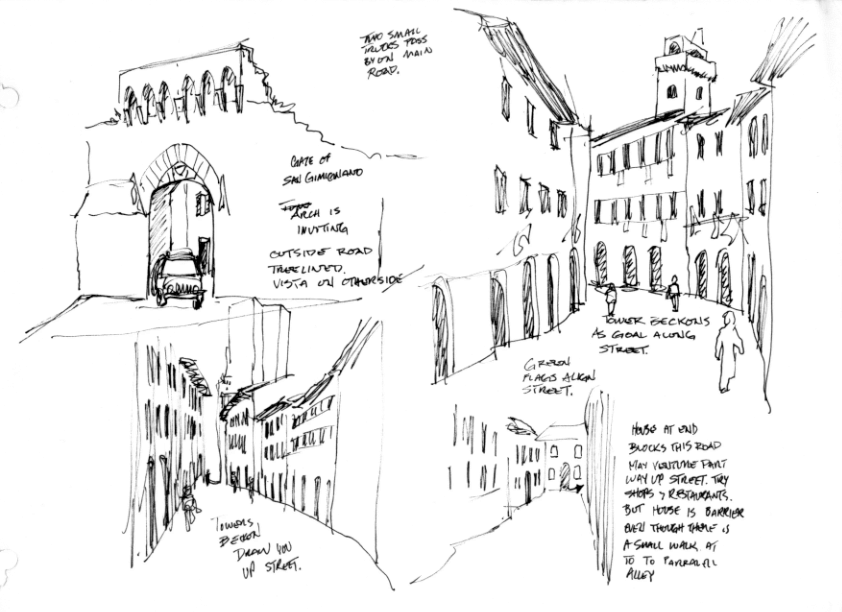 TWO SMALL
TRUCKS PASS
BY ON MAIN
ROAD.
GATE OF
SAN GIMIGNANO
ARCH IS
INVITING
OUTSIDE ROAD
TREELINED.
VISTA ON OTHERSIDE
TOWER BECKONS
AS GOAL ALONG
STREET.
GREEN
FLAGS ALIGN
STREET.
TOWERS
BECKON
DRAW YOU
UP STREET.
HOUSE AT END
BLOCKS THIS ROAD
MAY VENTURE PART
WAY UP STREET. TRY
SHOPS & RESTAURANTS.
BUT HOUSE IS BARRIER
EVEN THOUGH THERE IS
A SMALL WALK AT
TO TO PARRALELL
ALLEY